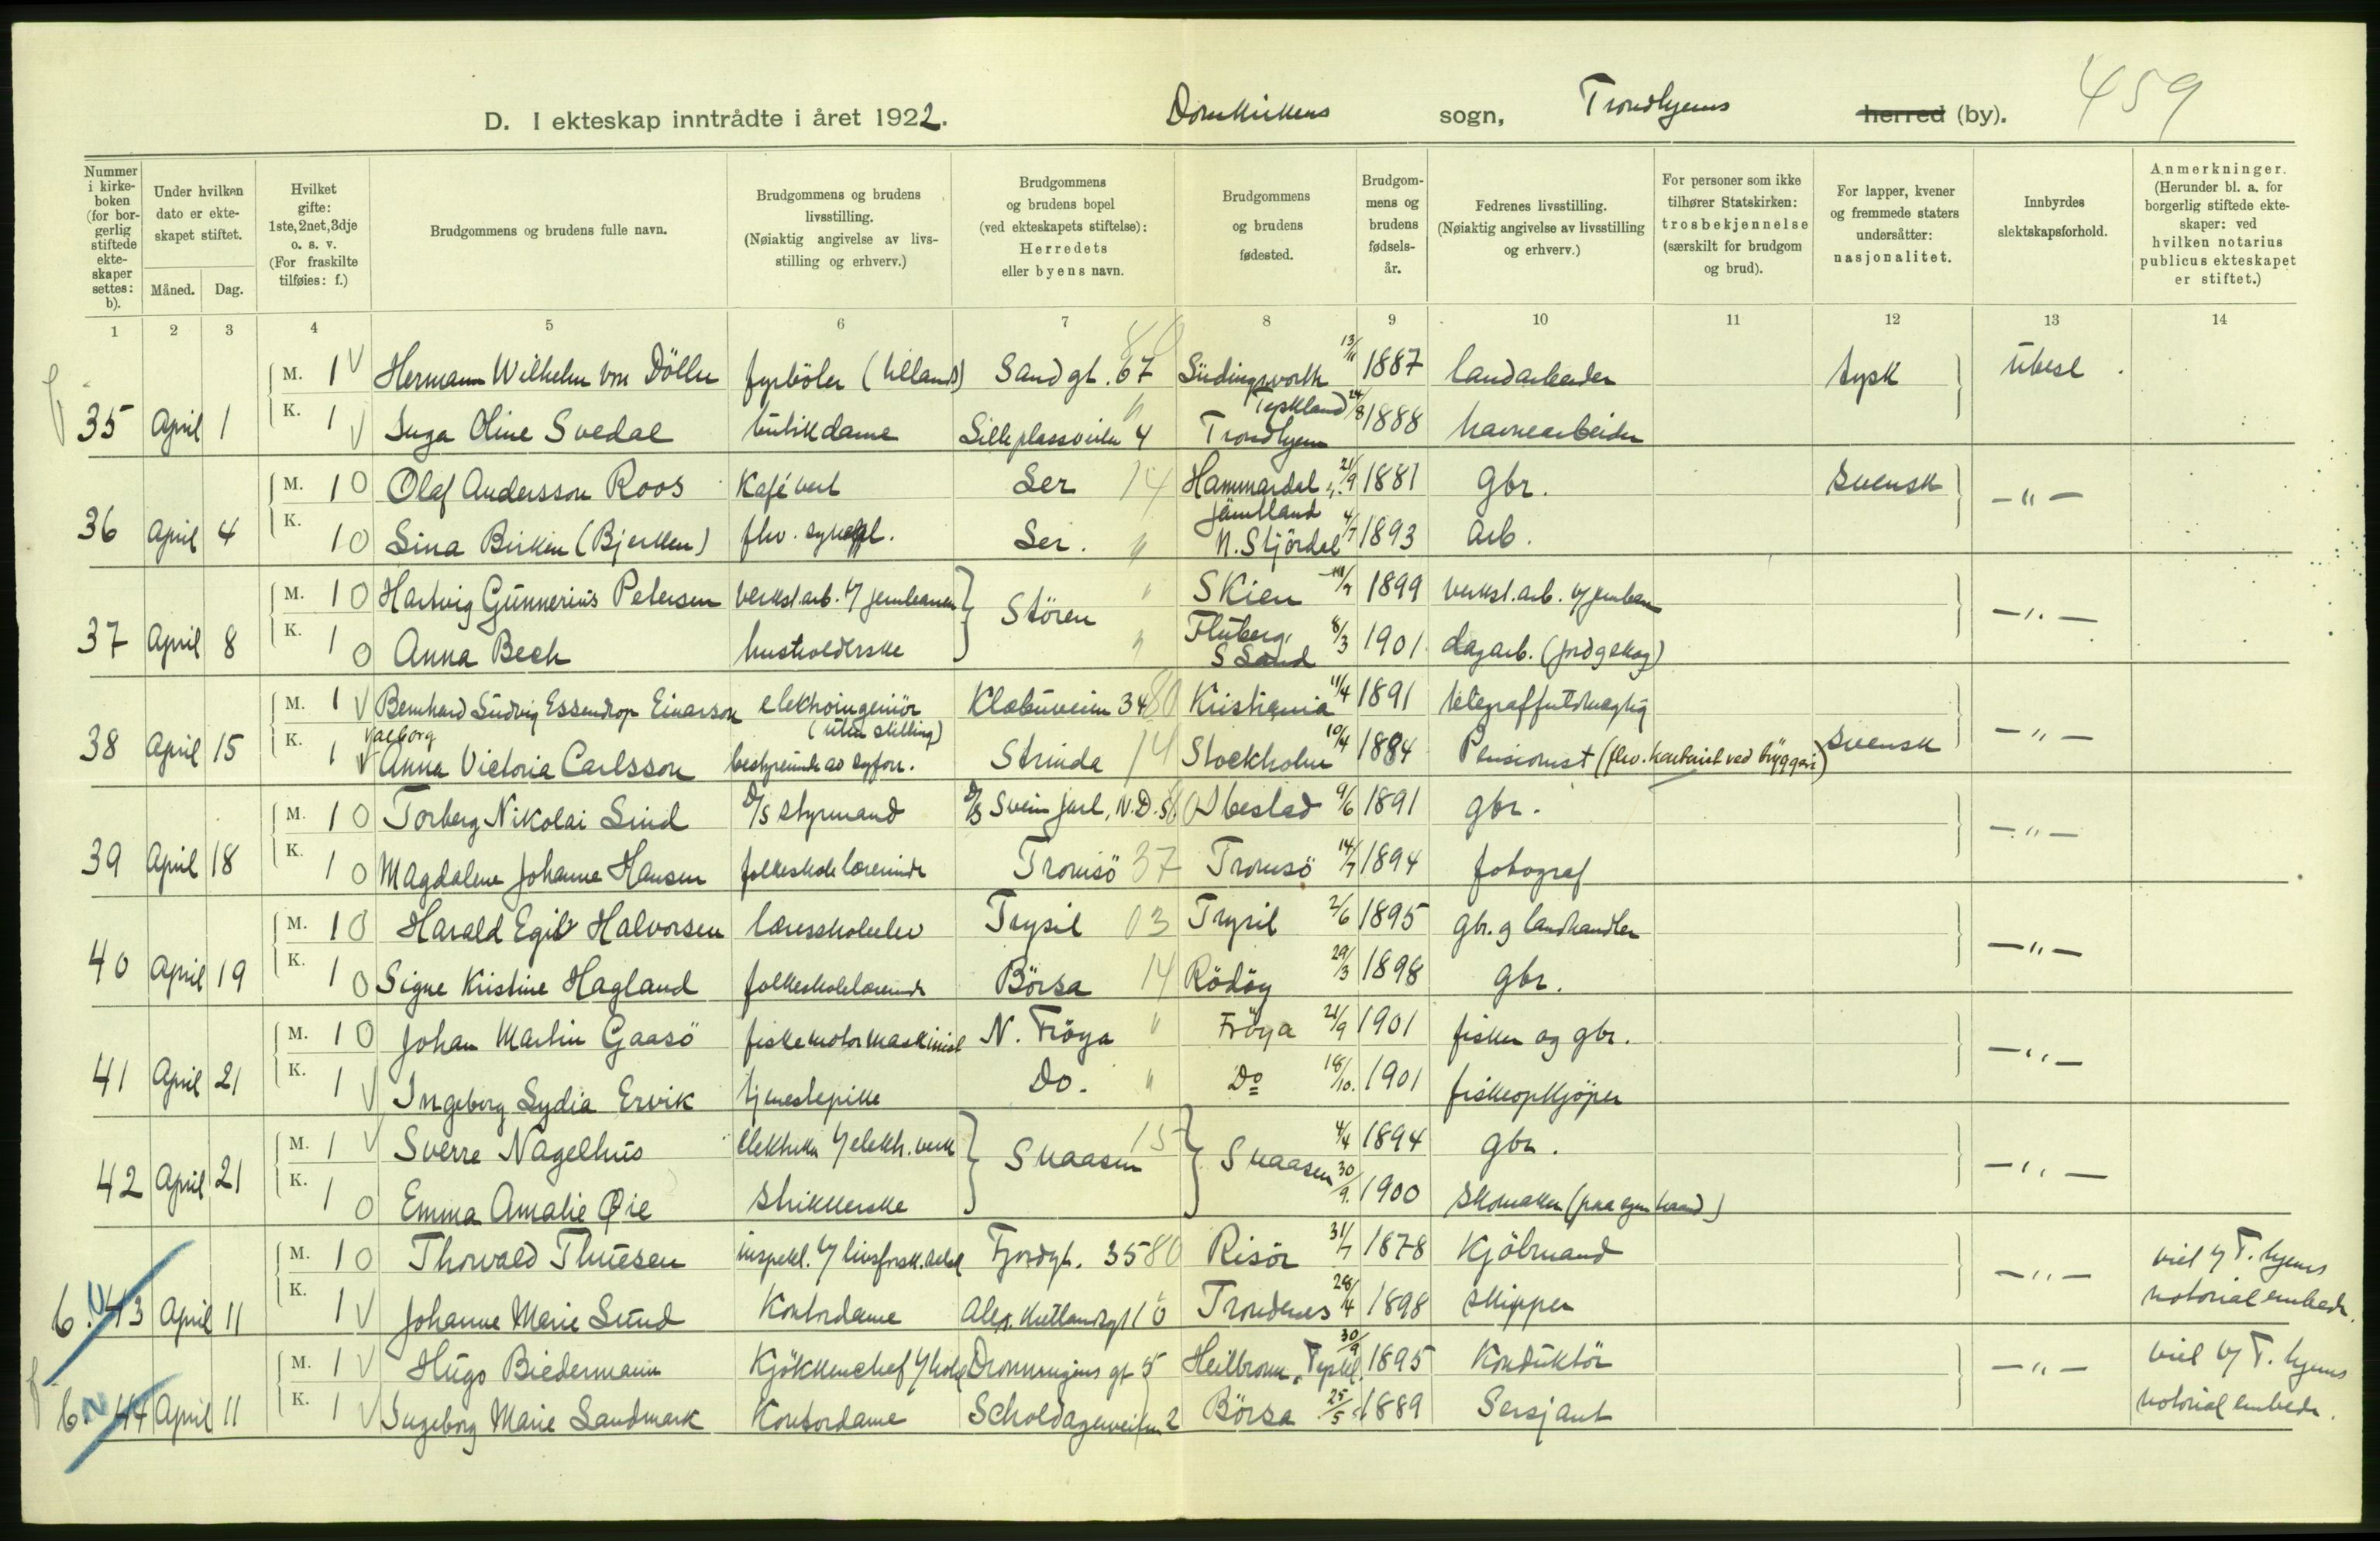 D. I ekteskap inntrådte i året 1922. Domkirkens sogn, Trondhjems herred (by). 459
Nummer i kirkeboken (for borgerlig stiftede ekteskaper settes: b).
Under hvilken dato er ekteskapet stiftet.
Måned. Dag.
Hvilket gifte: 1ste, 2net, 3dje o. s. v. (For fraskilte tilføies: f.)
Brudgommens og brudens fulle navn.
Brudgommens og brudens livsstilling. (Nøiaktig angivelse av livsstilling og erhverv.)
Brudgommens og brudens bopel (ved ekteskapets stiftelse): Herredets eller byens navn.
Brudgommens og brudens fødested.
Brudgommens og brudens fødselsår.
Fedrenes livsstilling. (Nøiaktig angivelse av livsstilling og erhverv.)
For personer som ikke tilhører Statskirken: trosbekjennelse (særskilt for brudgom og brud).
For lapper, kvener og fremmede staters undersåtter: nasjonalitet.
Innbyrdes slektskapsforhold.
Anmerkninger. (Herunder bl. a. for borgerlig stiftede ekteskaper: ved hvilken notarius publicus ekteskapet er stiftet.)
1 2 3 4 5 6 7 8 9 10 11 12 13 14
M. 1 Hermann Wilhelm von Döllen fyrböter (utlands) Sandgt. 67 80 Südingsworth Tyskland 13/11 1887 landarbeider tysk Ubesl.
35 April 1 K. 1 Inga Oline Svedal butikdame Lilleplassveien 4 " Trondhjem 24/8 1888 havnearbeider
M. 1 0 Olaf Andersson Roos Kafévert Ler 14 Hammardal, Jämtland 21/9 1881 gbr. Svensk - " -
36 April 4 K. 1 0 Lina Birken (Bjerken) fhv. Ler. " N. Stjördal 4/7 1893 arb.
M. 1 0 Hartvig Gunnerius Petersen verkst.arb. v/ jernbanen Stören " Skien 1899 verkst.arb. v/ jernban - " -
37 April 8 K. 1 0 Anna Bech husholderske " Fluberg, S Land 8/3 1901 dagarb. (jord g skog)
M. 1 Bernhard Ludvig Essendrop Einarson elektroingeniör (uten stilling) Klæbuveien 34 80 Kristiania 11/4 1891 telegraffuldmægtig - " -
38 April 15 K. 1 Valborg Anna Victoria Carlsson bestyrerinde av syforr. Strinda 14 Stockholm 10/4 1884 Pensionist (fhv. ved bryggeri) Svensk
M. 1 0 Torberg Nikolai Lind D/S styrmand D/S Svein Jarl, N.D.S. Ibestad 9/6 1891 gbr. - " -
39 April 18 K. 1 0 Magdalene Johanne Hansen folkeskolelærerinde Tromsö 37 Tromsö 14/7 1894 fotograf
M. 1 0 Harald Egil Halvorsen læreskoleelev Trysil 03 Trysil 2/6 1895 gbr. g landhandler - " -
40 April 19 K. 1 0 Signe Kristine Hagland folkeskolelærerinde Börsa 14 Rödöy 29/3 1898 gbr.
M. 1 0 Johan Martin Gaasö fiskemotormaskinist N. Fröya " Fröya 21/9 1901 fisker og gbr. - " -
41 April 21 K. 1 Ingeborg Lydia Ervik tjenestepike Do. " Do 18/10. 1901 fiskeopkjöper
M. 1 Sverre Nagelhus elektriker v/ elektr. verk Snaasen 15 Snaasen 4/4 1894 gbr. - " -
42 April 21 K. 1 0 Emma Amalie Øie strikkerske 30/9. 1900 skomaker (paa egen haand)
M. 1 0 Thorvald Thuesen inspekt. v/ livsforsk.selsk Fjordgt. 35 80 Risör 31/7 1878 Kjöbmand - " - viet v/ T.hjems notorialembede.
b. 43 April 11 K. 1 Johanne Marie Lund Kontordame Alex. Kiellandsgt 10 Trondenes 28/4 1898 skipper
M. 1 Hugo Biedermann Kjökkenchef v/ hotel Dronningens gt 5 Heilbronn, Tyskl. 30/9 1895 Konduktör - " - viet v/ T.hjems notorialembede.
b. 44 April 11 K. 1 Ingeborg Marie Landmark Kontordame Scholdagerveien 2 Börsa 25/5 1889 Sersjant